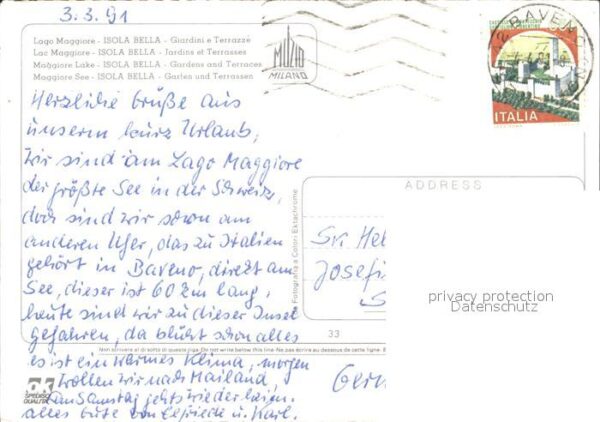 3.3.91
Lago Maggiore - ISOLA BELLA - Giardini e Terrazze
Lac Maggiore - ISOLA BELLA - Jardins et Terrasses
Maggiore Lake - ISOLA BELLA - Gardens and Terraces
Maggiore See - ISOLA BELLA - Garten und Terrassen
MUZIO
MILANO
BAVENO
ITALIA
Herzliche Grüße aus
unserm kurz Urlaub,
wir sind am Lago Maggiore
der größte See in der Schweiz,
doch sind wir schon am
anderen Ufer, das zu Italien
gehört in Baveno, direkt am
See, dieser ist 60 km lang,
heute sind wir zu dieser Insel
gefahren, da blüht schon alles
es ist ein warmes Klima, morgen
wollen wir nach Mailand,
am Samstag gehts wieder heim.
alles Gute von Elfriede u. Karl.
ADDRESS
Fotografia a Colori Ektachrome
Josefi
33
Non scrivere al di sotto di questa riga. Do not write below this line. Ne pas écrire au dessous de cette ligne.
Ger
privacy protection
Datenschutz
ok